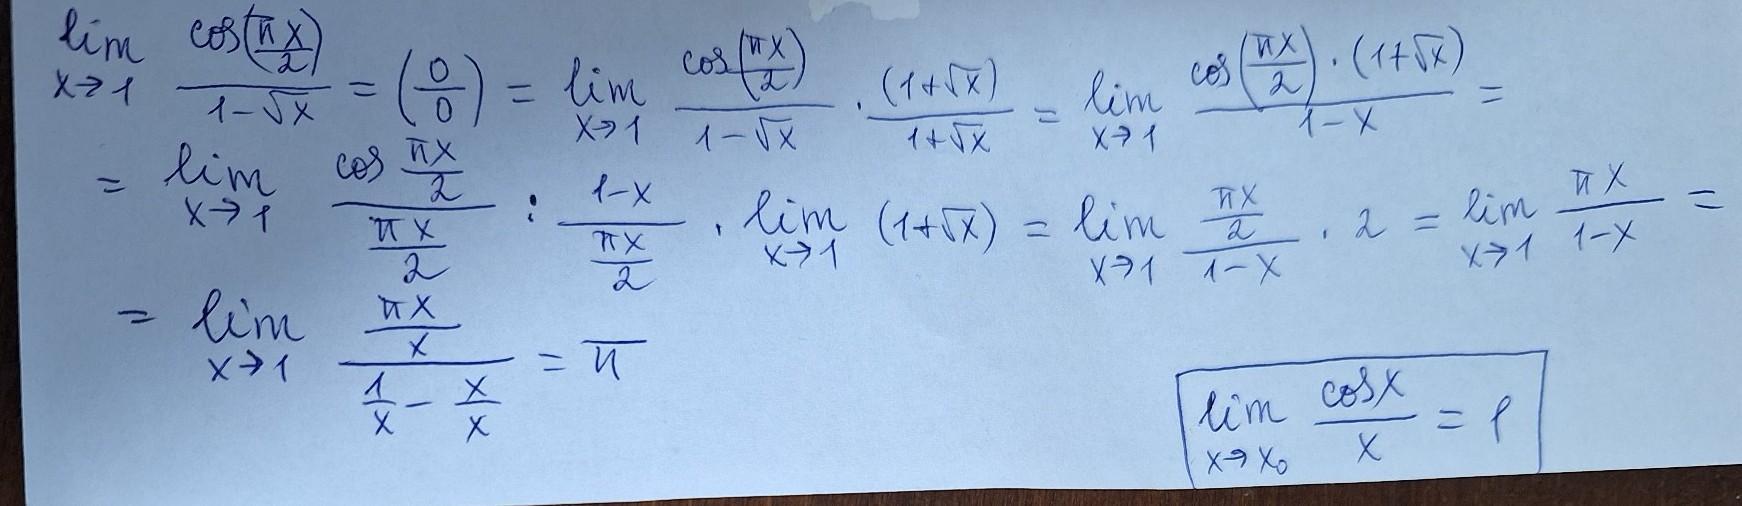 lim x→1 cos(πx/2) / (1-√x) = (0/0) = lim x→1 cos(πx/2) / (1-√x) · (1+√x) / (1+√x) = lim x→1 cos(πx/2) · (1+√x) / (1-x) =
= lim x→1 (cos πx/2) / (πx/2) : (1-x) / (πx/2) · lim x→1 (1+√x) = lim x→1 (πx/2) / (1-x) · 2 = lim x→1 πx / (1-x) =
= lim x→1 (πx/x) / (1/x - x/x) = π
lim x→x₀ cosx / x = 1